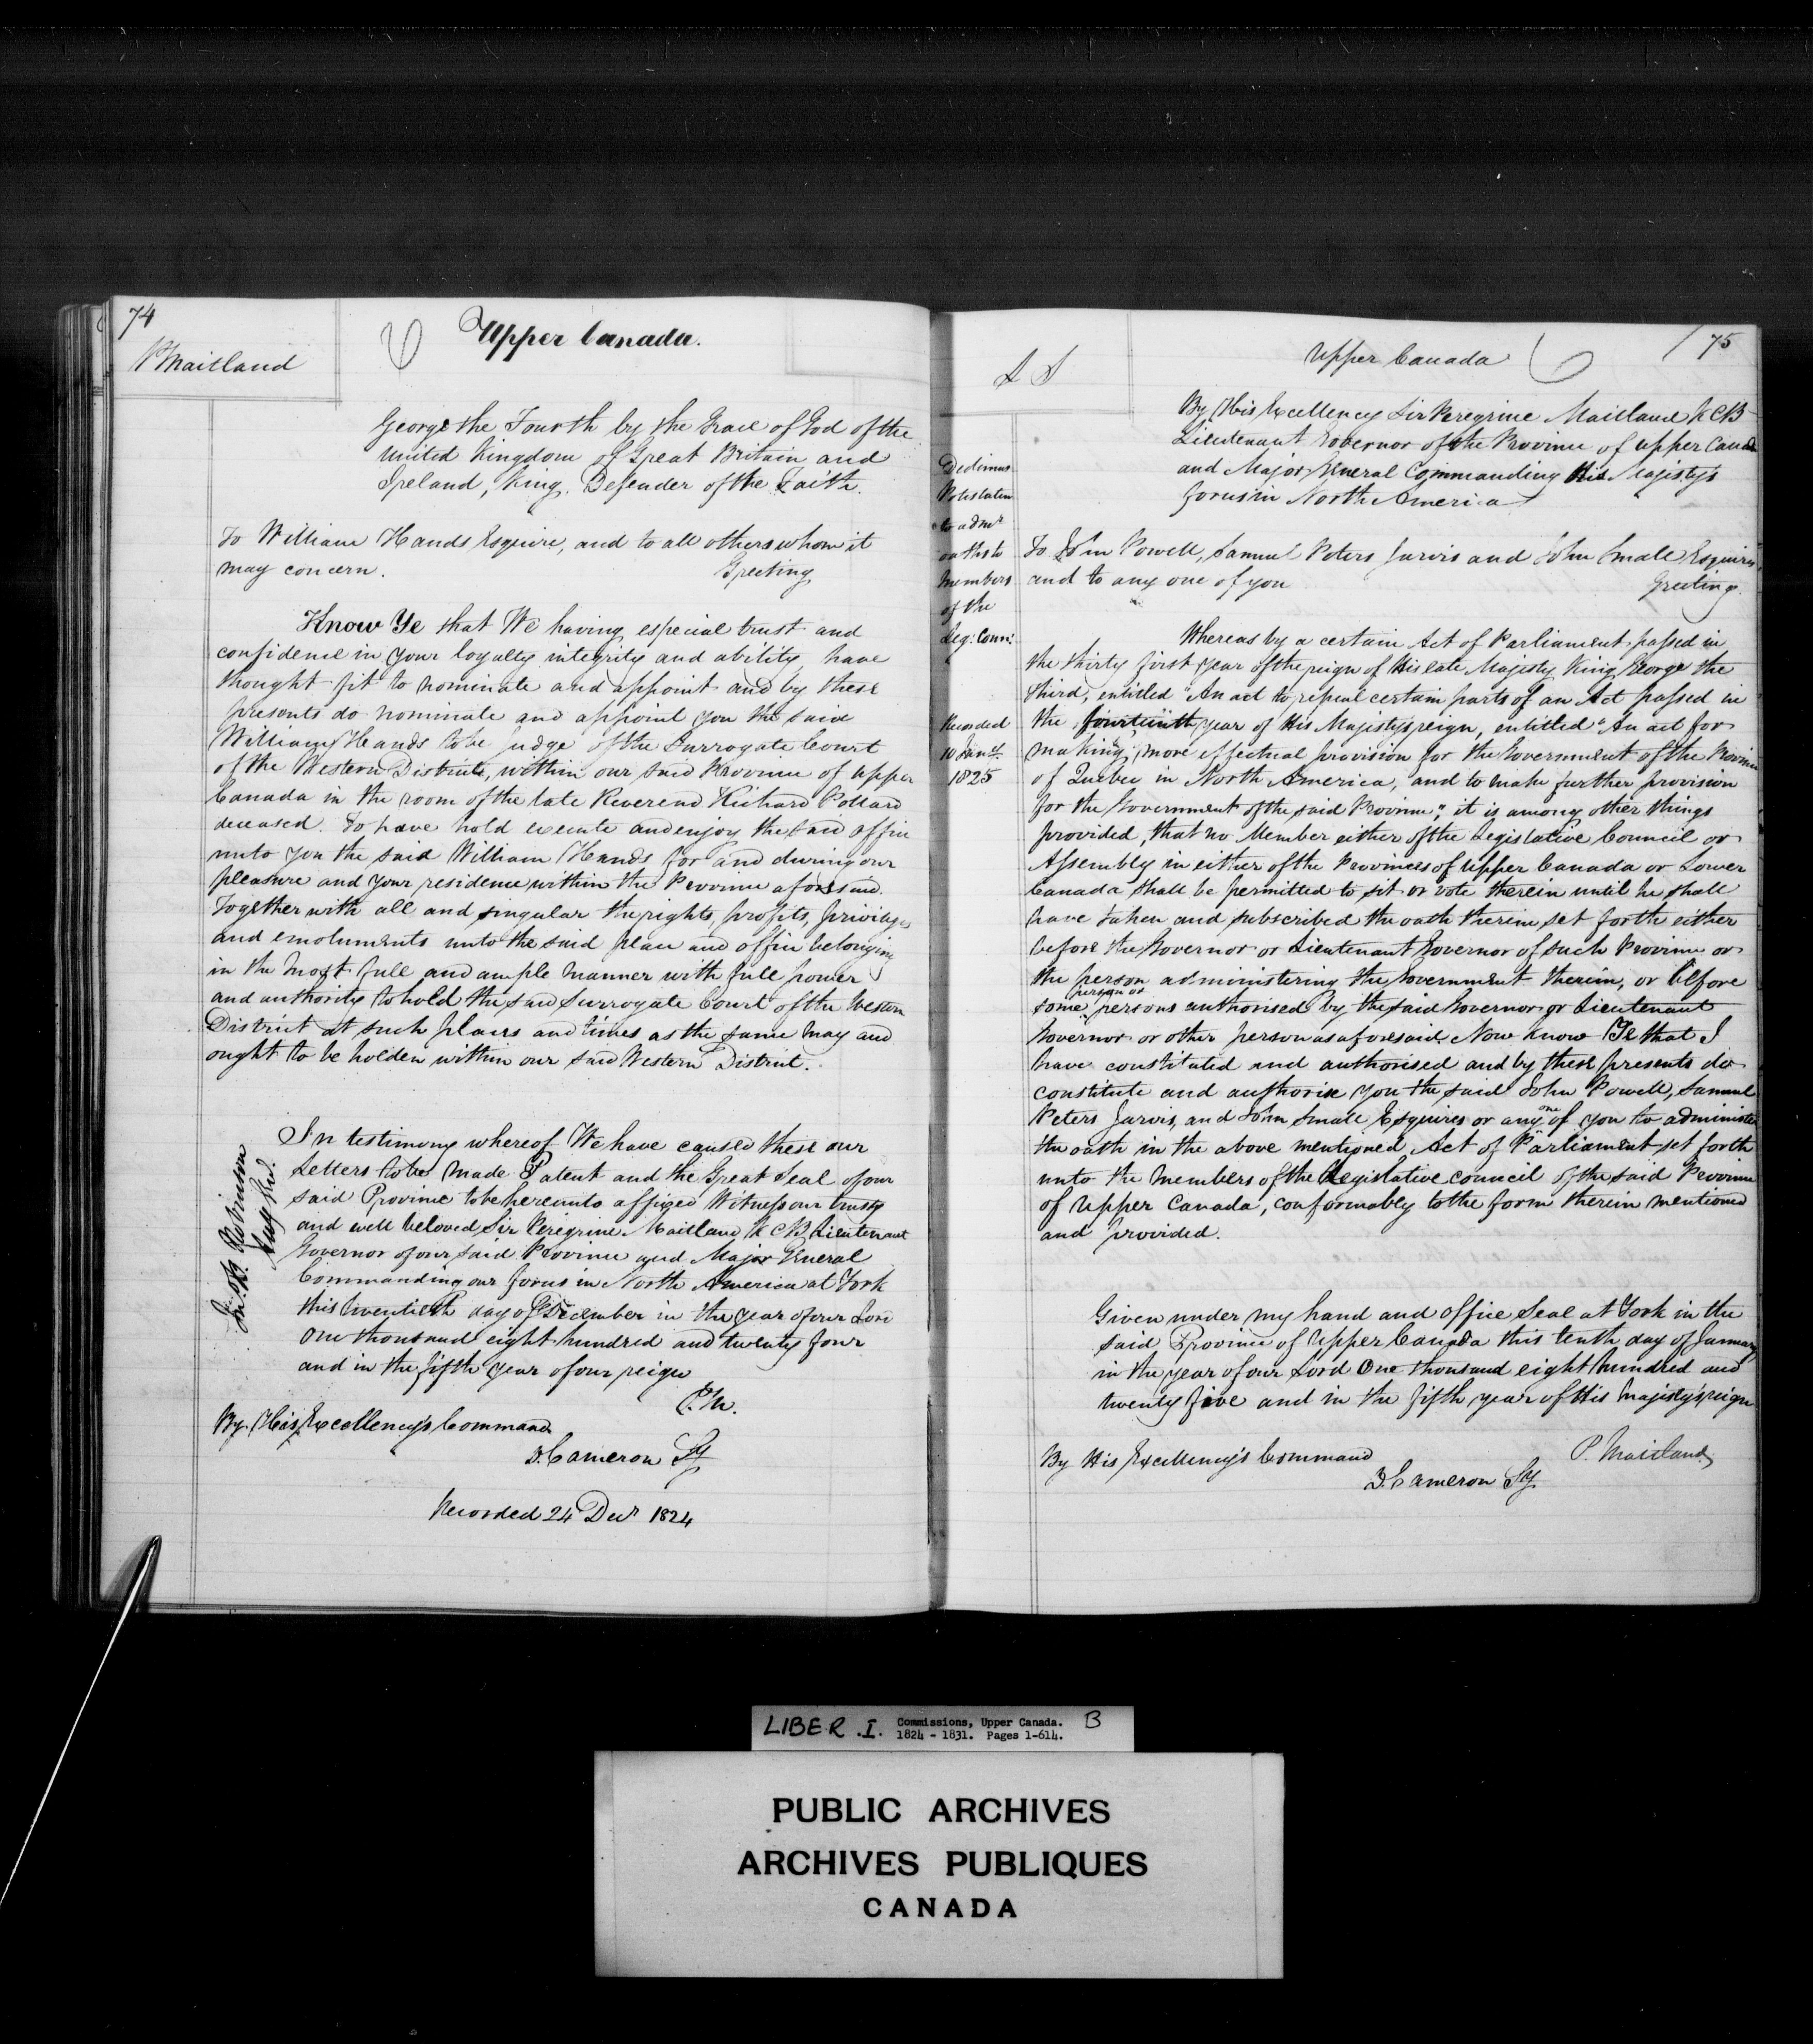 74
P Maitland
Upper Canada.
George the Fourth by the Grace of God of the
United Kingdom of Great Britain and
Ireland, King, Defender of the Faith.
To William Hands Esquire, and to all others whom it
may concern. Greeting
Know Ye that We having especial trust and
confidence in your loyalty integrity and ability, have
thought fit to nominate and appoint and by these
presents do nominate and appoint you the said
William Hands to be Judge of the Surrogate Court
of the Western District, within our said Province of Upper
Canada in the room of the late Reverend Richard Pollard
deceased. To have hold execute and enjoy the said office
unto you the said William Hands for and during our
pleasure and your residence within the Province aforesaid.
Together with all and singular the rights, profits, privileges
and emoluments unto the said place and office belonging
in the most full and ample manner with full power
and authority to hold the said Surrogate Court of the Western
District at such places and times as the same may and
ought to be holden within our said Western District.
In testimony whereof We have caused these our
Letters to be made Patent and the Great Seal of our
said Province to be hereunto affixed Witness our trusty
and well beloved Sir Peregrine Maitland K C B Lieutenant
Governor of our said Province and Major General
Commanding our forces in North America at York
this twentieth day of December in the year of our Lord
One thousand eight hundred and twenty four
and in the fifth year of our reign
P.M.
Jno. B. Robinson
By His Excellency's Command
D. Cameron Sy
Recorded 24 Decr 1824
75
L S
Upper Canada
By His Excellency Sir Peregrine Maitland K C B
Lieutenant Governor of the Province of Upper Canada
and Major General Commanding His Majesty's
forces in North America
Dedimus
Potestatem
to admr
oaths to
Members
of the
Leg: Coun:
Recorded
10 Jany.
1825
To John Powell, Samuel Peters Jarvis and John Small Esquires,
and to any one of you Greeting.
Whereas by a certain Act of Parliament, passed in
the thirty first year of the reign of His late Majesty King George the
third, entitled "An act to repeal certain parts of an Act passed in
the fourteenth year of His Majesty's reign, entitled "An act for
making more effectual provision for the Government of the Province
of Quebec in North America, and to make further provision
for the Government of the said Province," it is among other things
provided, that no Member either of the Legislative Council or
Assembly in either of the Provinces of Upper Canada or Lower
Canada shall be permitted to sit or vote therein until he shall
have taken and subscribed the oath therein set forth either
before the Governor or Lieutenant Governor of such Province or
the person administering the Government therein, or before
some person or persons authorised by the said Governor or Lieutenant
Governor or other person as aforesaid, Now know Ye that I
have constituted and authorised and by these presents do
constitute and authorise you the said John Powell, Samuel
Peters Jarvis, and John Small Esquires or any one of you to administer
the oath in the above mentioned Act of Parliament set forth
unto the Members of the Legislative Council of the said Province
of Upper Canada, conformably to the form therein mentioned
and provided.
Given under my hand and office Seal at York in the
said Province of Upper Canada this tenth day of January
in the year of our Lord One thousand eight hundred and
twenty five and in the fifth year of His Majesty's reign
P. Maitland
By His Excellency's Command
D. Cameron Sy
LIBER .I. Commissions, Upper Canada. B
1824 - 1831. Pages 1-614.
PUBLIC ARCHIVES
ARCHIVES PUBLIQUES
CANADA